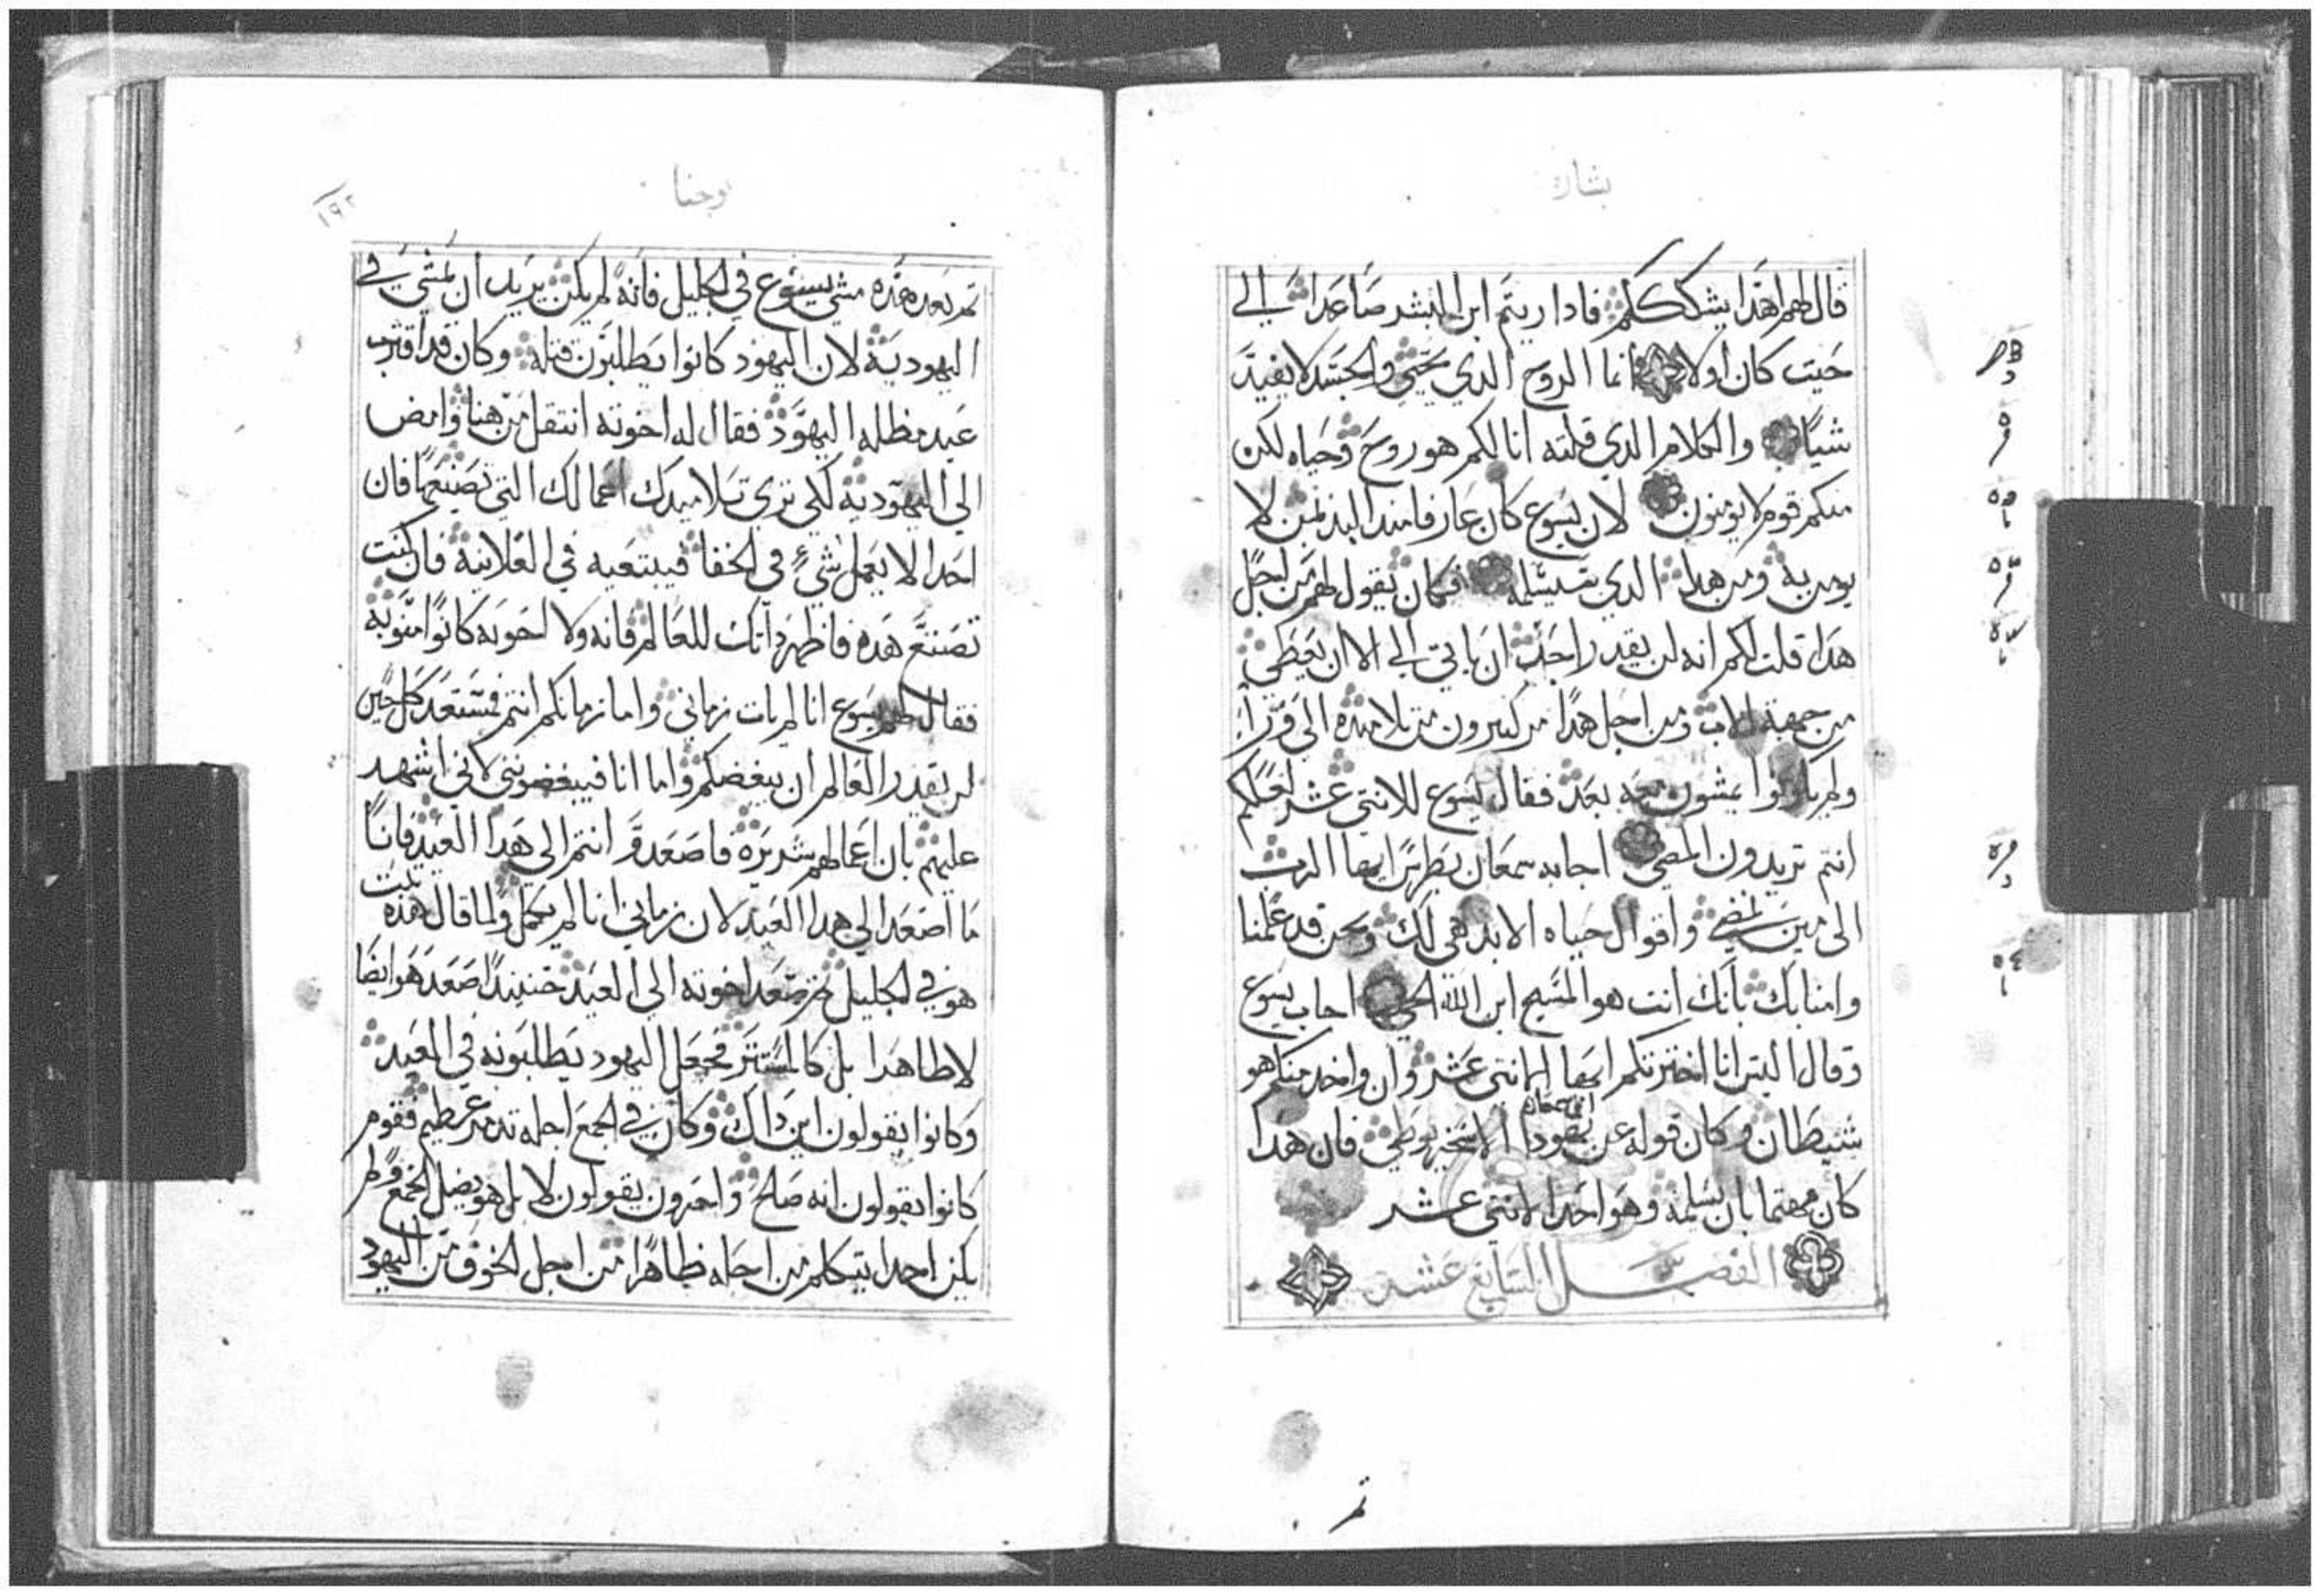 بشارة
قال لهم اهدا يشكككم فادا ريتم ابن البشر صاعدا الي
حيت كان اولا انما الروح الدي يحيي والجسد لا يفيد
شيا والكلام الدي قلته انا لكم هو روح وحياه لكن
منكم قوم لا يومنون لان يسوع كان عارفا مند البد بمن لا
يومن به ومن هدا الدي سيسلمه فكان يقول لهم من اجل
هدا قلت لكم انه لن يقدر احد ان ياتي الي الا ان يعطي
من جهة الاب ومن اجل هدا مر كتيرون من تلاميده الي ورا
ولم يكونوا يمشون معه بعد فقال يسوع للاتني عشر لعلكم
انتم تريدون المضي اجابه سمعان بطرس ايها الرب
الى من نمضي واقوال حياه الابد هي لك ونحن قد علمنا
وامنا بك بانك انت هو المسيح ابن الله الحي اجاب يسوع
وقال اليس انا اخترتكم ايها الاتني عشر وان واحد منكم هو
شيطان وكان قوله عن يهودا ابن سمعان الاسخريوطي فان هدا
كان مهتما بان يسلمه وهو احد الاتني عشر
الفصل السابع عشر
تم
يوحنا
١٩٢
تم بعد هده مشي يسوع في الجليل فانه لم يكن يريد ان يمشي في
اليهودية لان اليهود كانوا يطلبون قتله وكان قد اقترب
عيد مظله اليهود فقال له اخوته انتقل من هنا وامض
الي اليهودية لكي تري تلاميدك اعمالك التي تصنعها فان
احدا لا يعمل شيء في الخفا فيبتغيه في العلانية فان كنت
تصنع هده فاظهر داتك للعالم فانه ولا اخوته كانوا امنو به
فقال لهم يسوع انا لم يات زماني واما زمانكم انتم فمستعد كل حين
لن يقدر العالم ان يبغضكم واما انا فيبغضوني لاني اشهد
عليهم بان اعمالهم شريره فاصعدو انتم الي هدا العيد فانا
ما اصعد الي هدا العيد لان زماني انا لم يكمل ولما قال هده تبت
هو في الجليل تم صعد اخوته الي العيد حينيدا صعد هو ايضا
لا ظاهرا بل كالمستتر فجعل اليهود يطلبونه في العيد
وكانوا يقولون اين داك وكان في الجمع اجله تدمر عظيم فقوم
كانوا يقولون انه صالح واخرون يقولون لا بل هو يضل الجمع ولم
يكن احدا يتكلم من اجله ظاهرا من اجل الخوف من اليهود